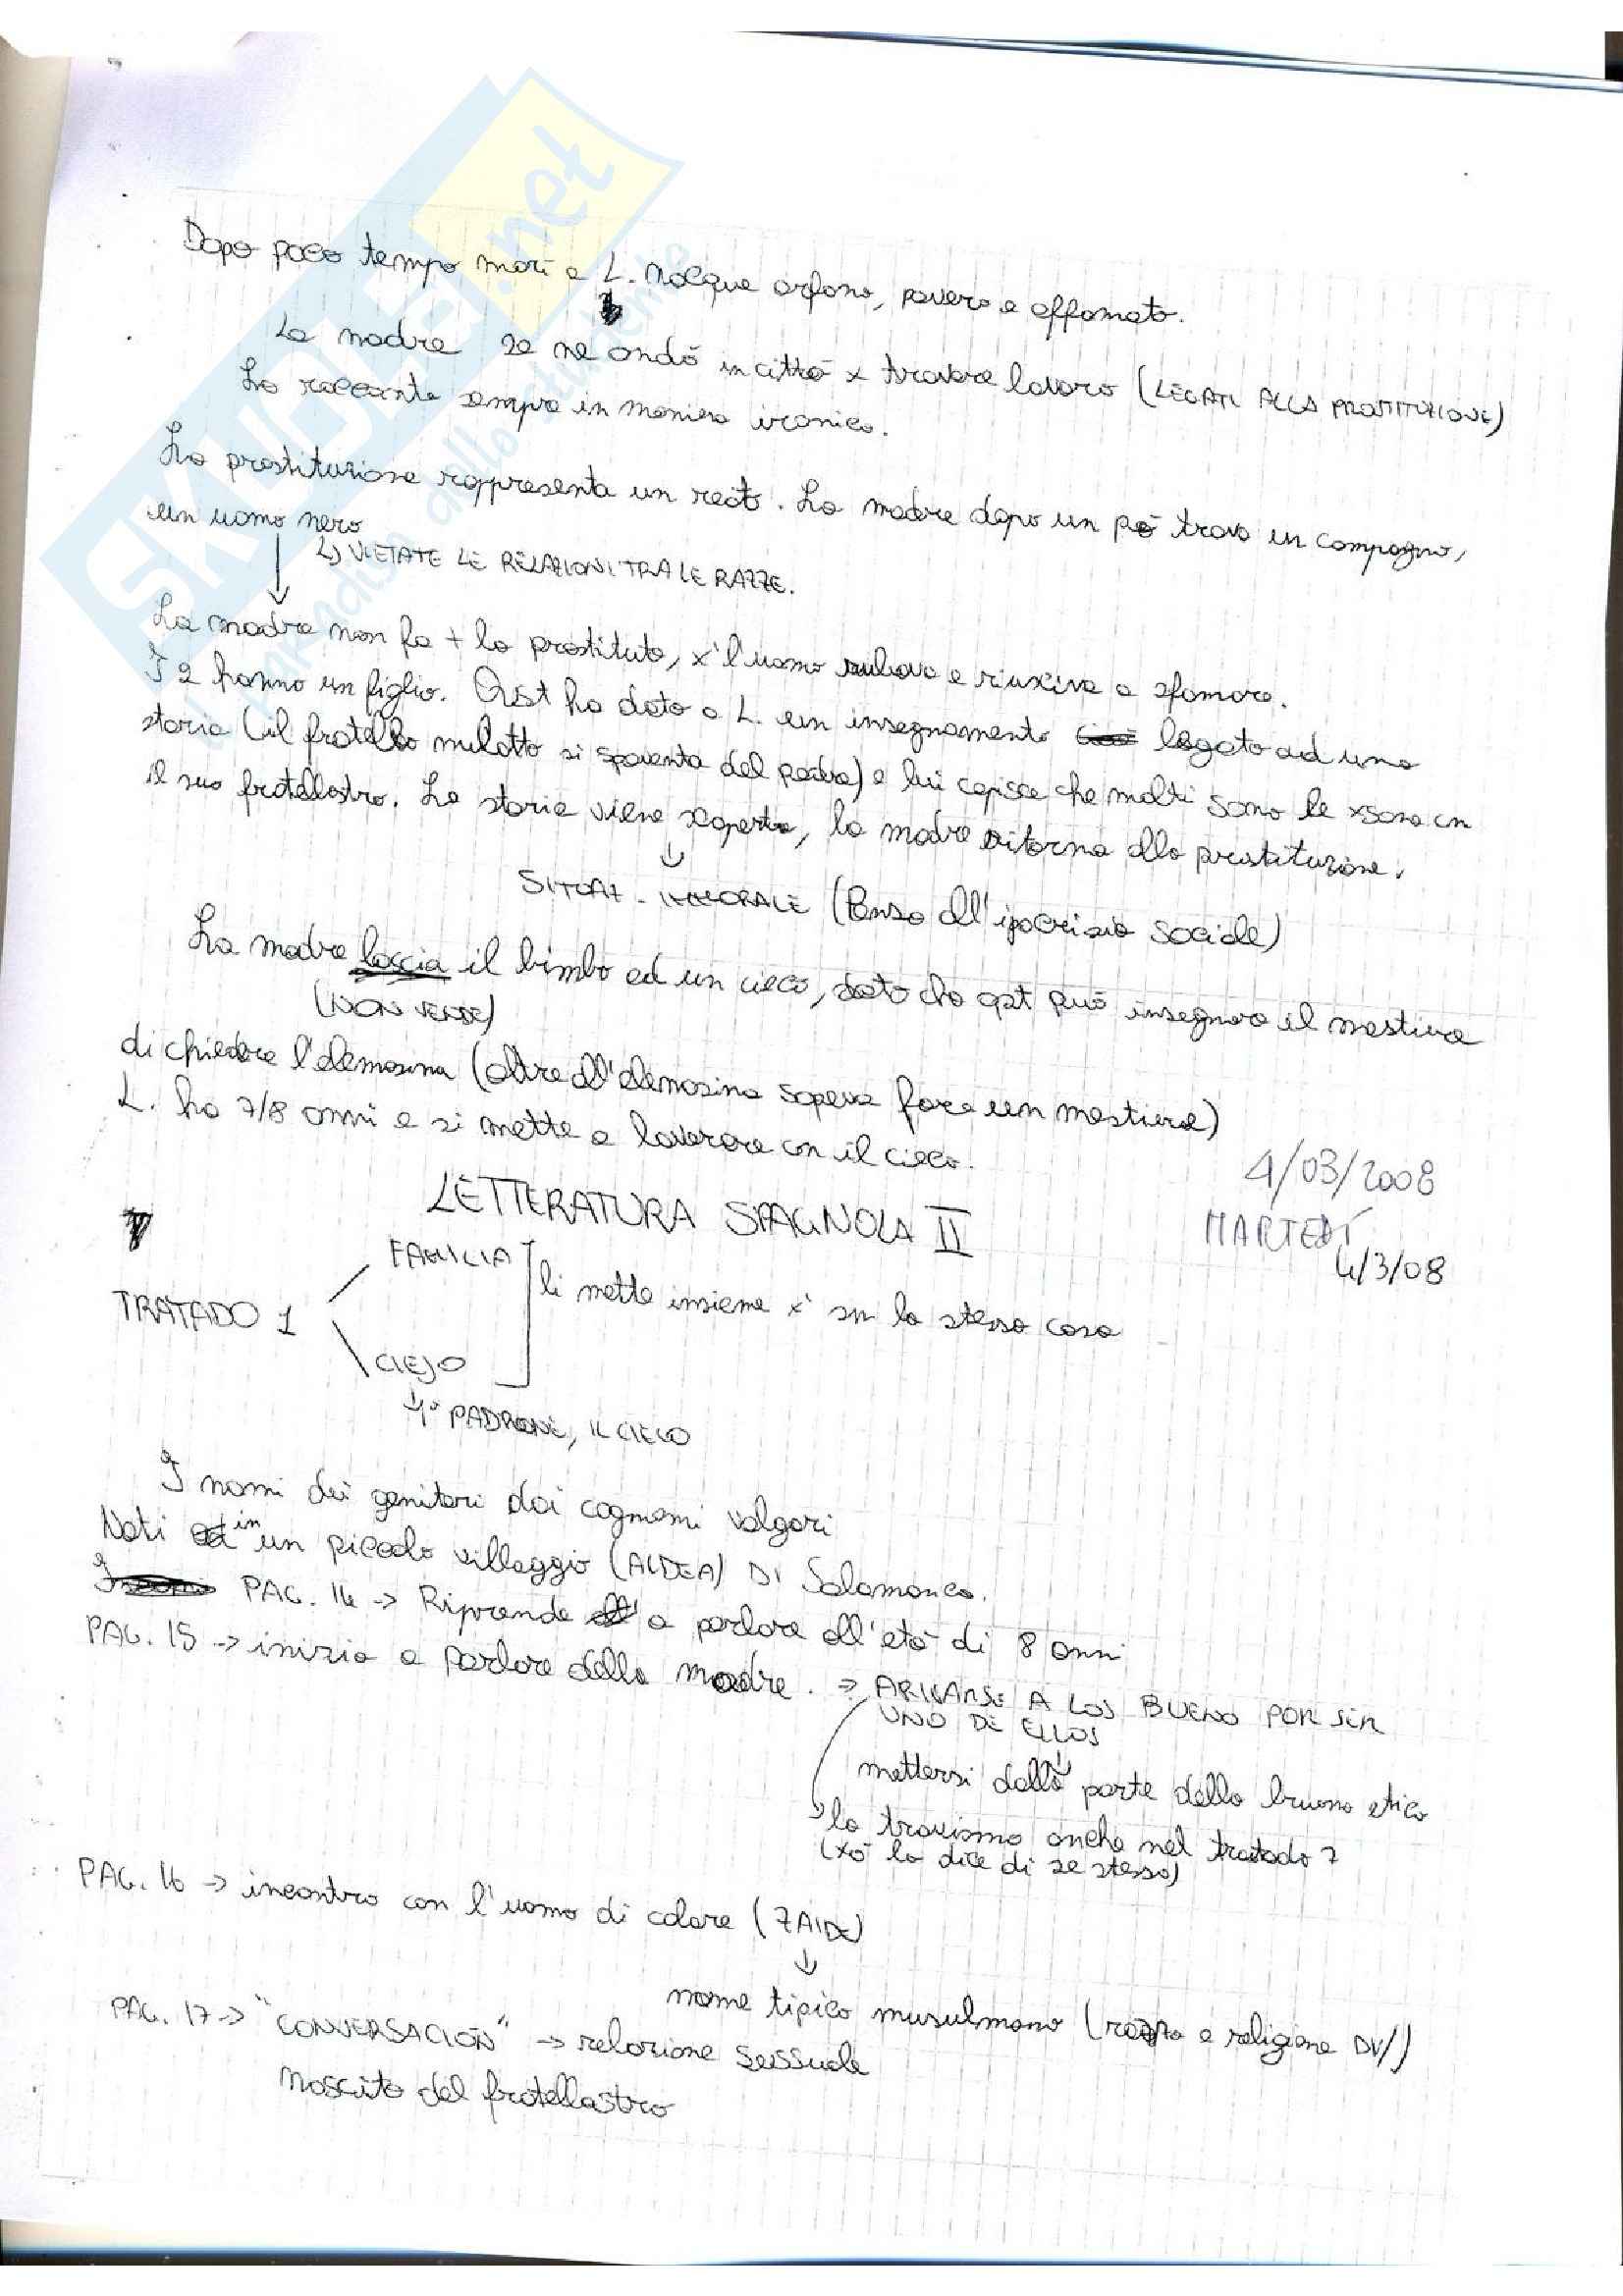 Dopo poco tempo morì e L. nacque orfano, povero e affamato.
La madre se ne andò in città x trovare lavoro (LEGATI ALLA PROSTITUZIONE)
Lo racconta sempre in maniera ironica.
La prostituzione rappresenta un reato. La madre dopo un pò trova un compagno,
un uomo nero
↳ VIETATE LE RELAZIONI TRA LE RAZZE.
La madre non fa + la prostituta, x' l'uomo rubava e riusciva a sfamare.
I 2 hanno un figlio. Qst ha dato a L. un insegnamento legato ad una
storia (il fratello mulatto si spaventa del padre) e lui capisce che molti sono le xsone cm
il suo fratellastro. La storia viene scoperta, la madre ritorna alla prostituzione.
SITUAZ. IMMORALE (Pensa all'ipocrisia sociale)
La madre lascia il bimbo ad un cieco, dato che qst può insegnare il mestiere
(NON VENDE)
di chiedere l'elemosina (oltre all'elemosina sapeva fare un mestiere)
L. ha 7/8 anni e si mette a lavorare con il cieco.
4/03/2008
LETTERATURA SPAGNOLA II
MARTEDÌ
4/3/08
FAMILIA
li mette insieme x' sn la stessa cosa
TRATADO 1
CIEJO
↓ 1° PADRONE, IL CIECO
I nomi dei genitori dai cognomi volgari
Nati in un piccolo villaggio (ALDEA) DI Salamanca.
PAG. 14 → Riprende a parlare all'età di 8 anni
PAG. 15 → inizia a parlare della madre. → ARIVARSE A LOS BUENO POR SER
UNO DE ELLOS
mettersi dalla parte della buona etica
lo troviamo anche nel tratado 7
(xò lo dice di se stesso)
PAG. 16 → incontro con l'uomo di colore (ZAIDE)
nome tipico musulmano (razza e religione DV//)
PAG. 17 → "CONVERSACIÓN" → relazione sessuale
Nascita del fratellastro
SKUOLA.net
il paradiso dello studente